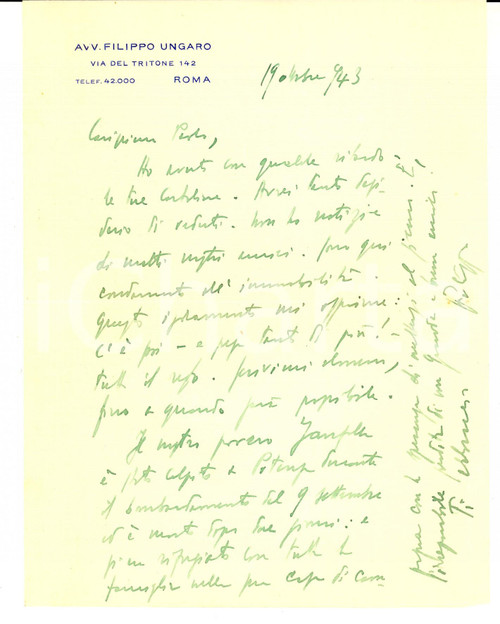 AVV. FILIPPO UNGARO
VIA DEL TRITONE 142
TELEF. 42.000 ROMA
19 ottobre 943
Carissimo Paolo,
Ho avuto con qualche ritardo
le tue cartoline. Avrei tanto desi-
derio di vederti. Non ho notizie
di molti nostri amici. Sono qui
condannato all'immobilità.
Questo isolamento mi opprime:
C'è poi – e pesa tanto di più!
tutto il resto. Scrivimi almeno,
fino a quando sarà possibile.
Il nostro povero
è stato colpito a Potenza durante
il bombardamento del 9 settembre
ed è morto dopo due giorni: e
rifugiato con tutta la
famiglia nella sua casa di cam
con la speranza di
di un grande e vero amico.
Ti abbraccio